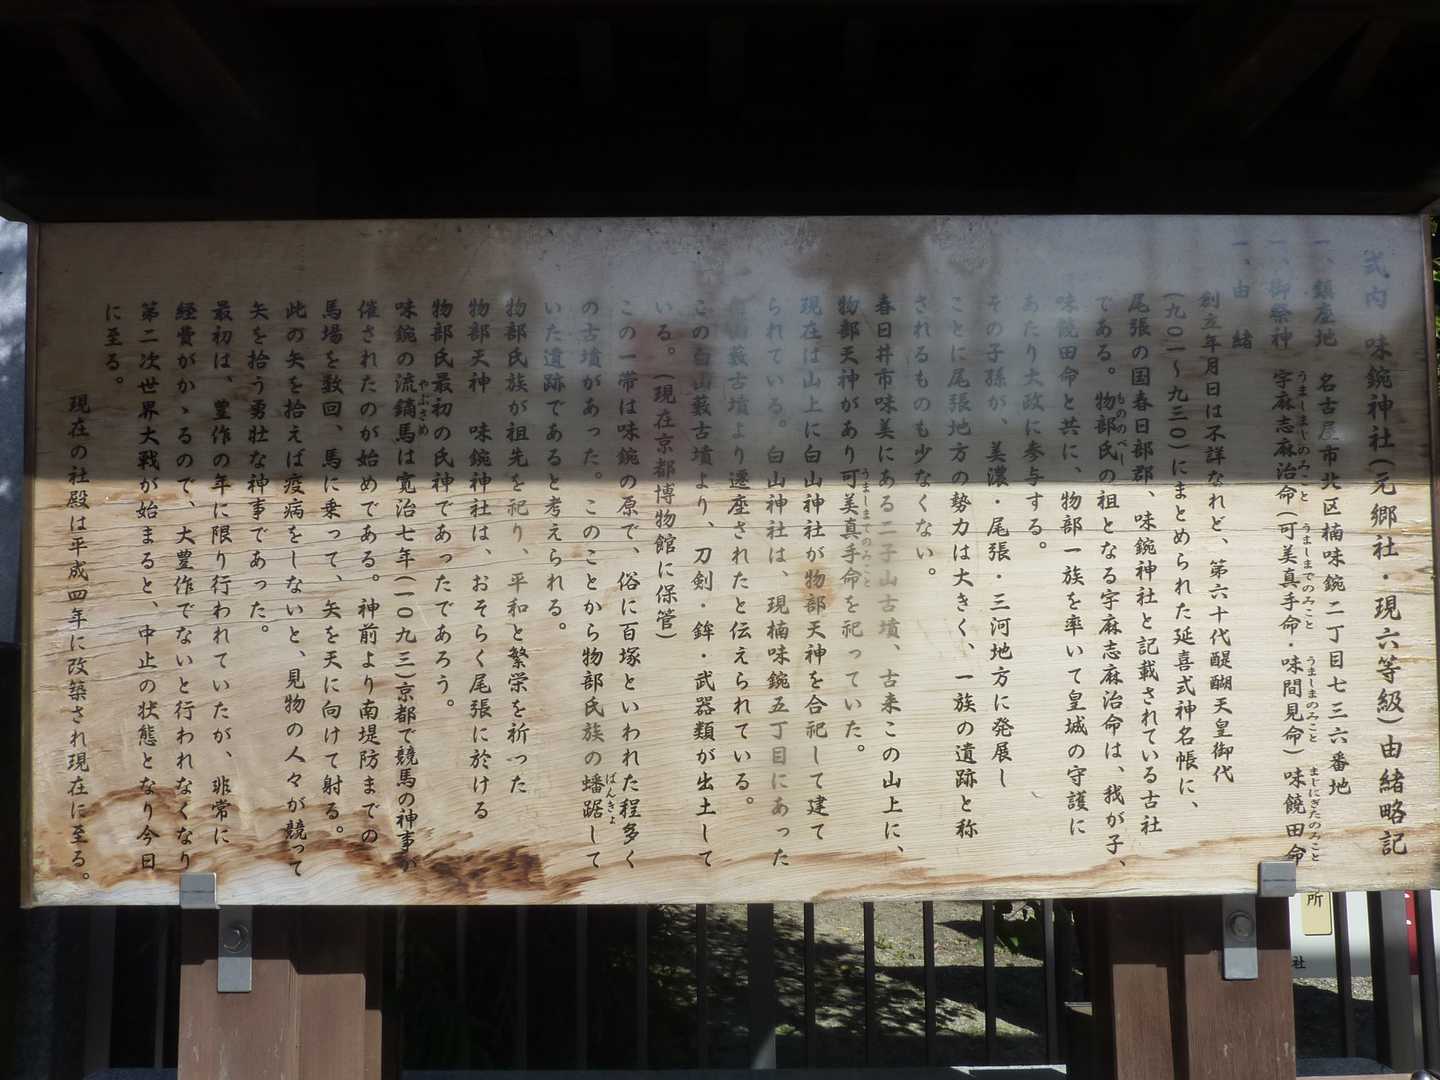 式内 味鋺神社(元郷社・現六等級)由緒略記
一、鎮座地 名古屋市北区楠味鋺二丁目七三六番地
一、御祭神 宇麻志麻治命(可美真手命・味間見命)味饒田命
うましまじのみこと うましまでのみこと うましまのみこと ましにぎたのみこと
一、由 緒
創立年月日は不詳なれど、第六十代醍醐天皇御代
(九〇一〜九三〇)にまとめられた延喜式神名帳に、
尾張の国春日部郡、味鋺神社と記載されている古社
である。物部氏の祖となる宇麻志麻治命は、我が子、
もののべし
味饒田命と共に、物部一族を率いて皇城の守護に
あたり大政に参与する。
その子孫が、美濃・尾張・三河地方に発展し
ことに尾張地方の勢力は大きく、一族の遺跡と称
されるものも少なくない。
春日井市味美にある二子山古墳、古来この山上に、
物部天神があり可美真手命を祀っていた。
うましまでのみこと
現在は山上に白山神社が物部天神を合祀して建て
られている。白山神社は、現楠味鋺五丁目にあった
藪古墳より遷座されたと伝えられている。
この白山藪古墳より、刀剣・鉾・武器類が出土して
いる。(現在京都博物館に保管)
この一帯は味鋺の原で、俗に百塚といわれた程多く
の古墳があった。このことから物部氏族の蟠踞して
ばんきょ
いた遺跡であると考えられる。
物部氏族が祖先を祀り、平和と繁栄を祈った
物部天神 味鋺神社は、おそらく尾張に於ける
物部氏最初の氏神であったであろう。
味鋺の流鏑馬は寛治七年(一〇九三)京都で競馬の神事が
やぶさめ
催されたのが始めである。神前より南堤防までの
馬場を数回、馬に乗って、矢を天に向けて射る。
此の矢を拾えば疫病をしないと、見物の人々が競って
矢を拾う勇壮な神事であった。
最初は、豊作の年に限り行われていたが、非常に
経費がかゝるので、大豊作でないと行われなくなり
第二次世界大戦が始まると、中止の状態となり今日
に至る。
現在の社殿は平成四年に改築され現在に至る。
所
社